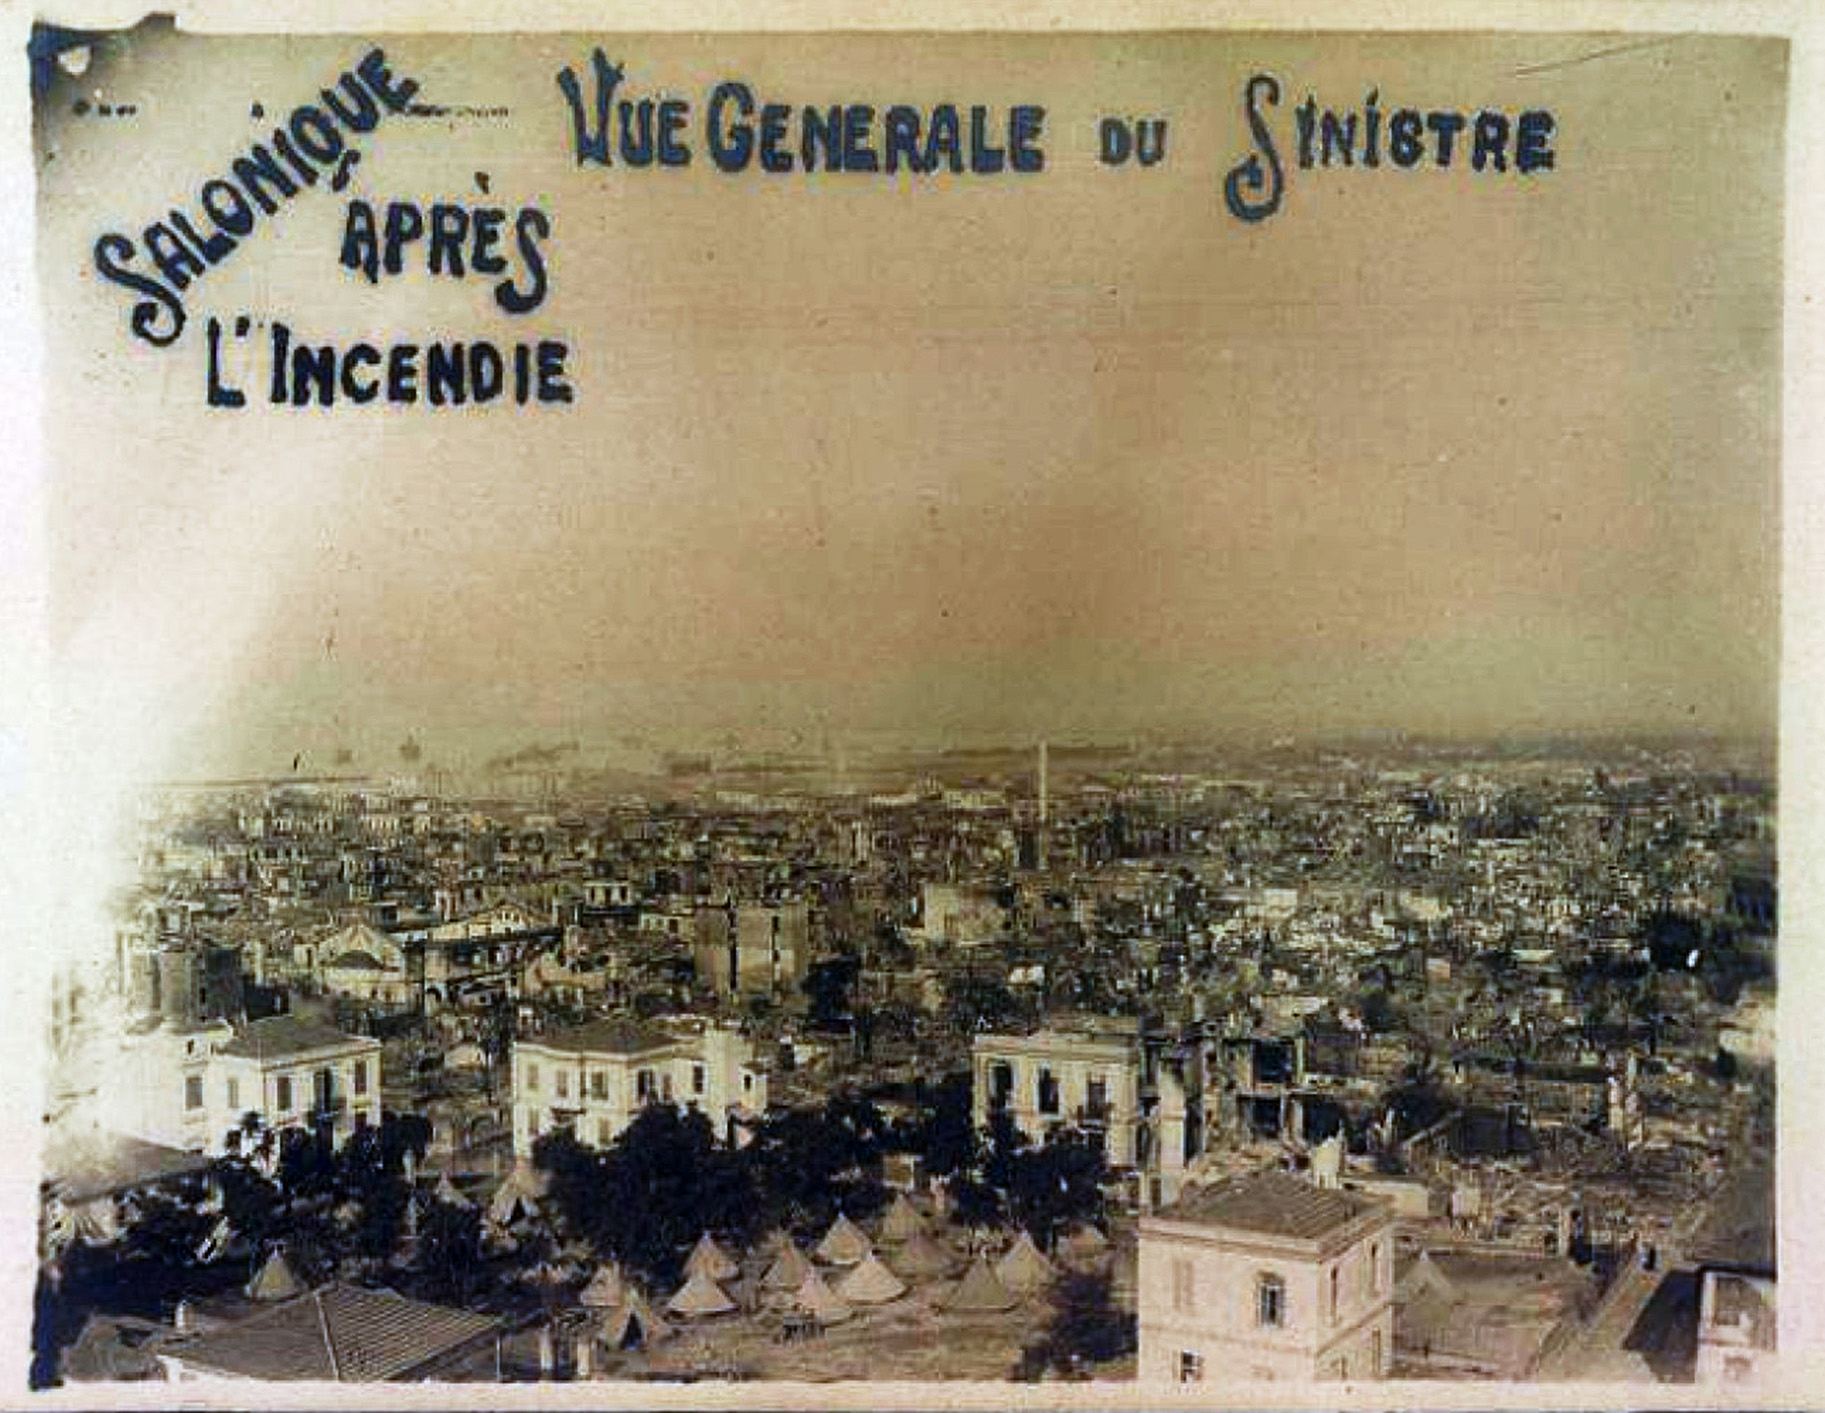 SALONIQUE
APRÈS
L'INCENDIE
VUE GENERALE DU SINISTRE